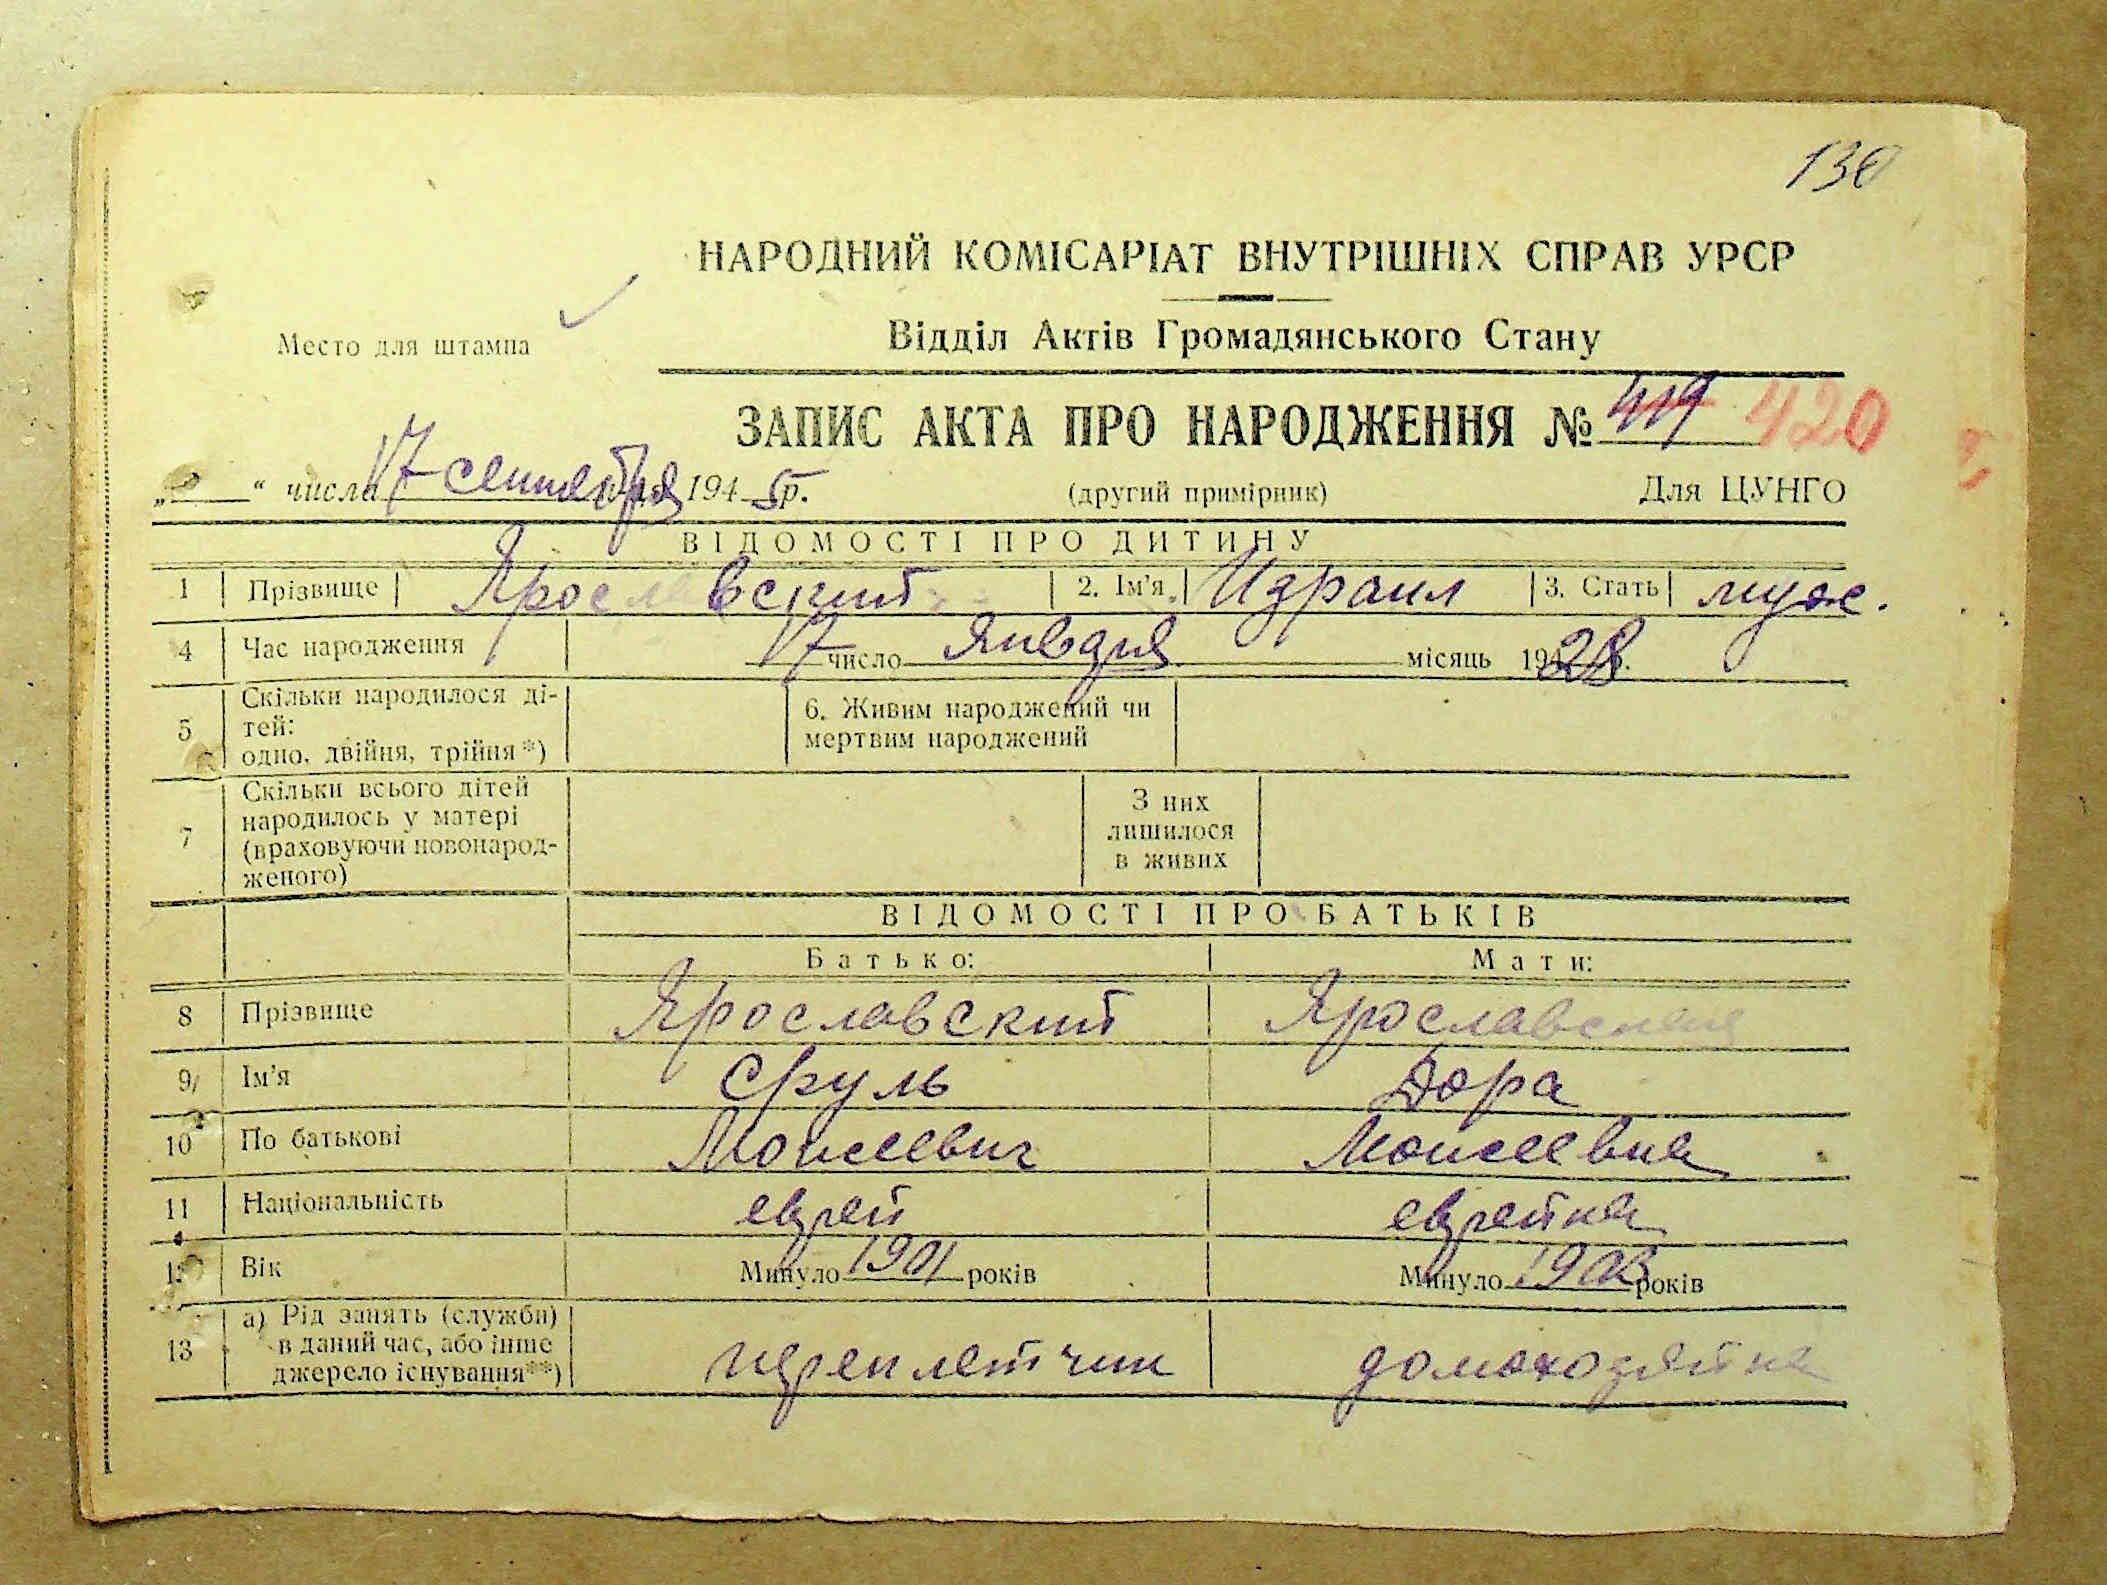 130
НАРОДНИЙ КОМІСАРІАТ ВНУТРІШНІХ СПРАВ УРСР
Место для штампа
Відділ Актів Громадянського Стану
ЗАПИС АКТА ПРО НАРОДЖЕННЯ № 419 420
„ “ числа 17 сентября 1945 р. (другий примірник) Для ЦУНГО
ВІДОМОСТІ ПРО ДИТИНУ
1 Прізвище Ярославский 2. Ім'я. Израил 3. Стать муж.
4 Час народження 17 число Января місяць 1928 р.
5 Скільки народилося ді-
тей:
одно, двійня, трійня*)
6. Живим народжений чи
мертвим народжений
7 Скільки всього дітей
народилось у матері
(враховуючи новонарод-
женого)
З них
лишилося
в живих
ВІДОМОСТІ ПРО БАТЬКІВ
Батько: Мати:
8 Прізвище Ярославский Ярославская
9 Ім'я Сруль Дора
10 По батькові Моисеевич Моисеевна
11 Національність еврей еврейка
12 Вік Минуло 1901 років Минуло 1903 років
13 а) Рід занять (служби)
в даний час, або інше
джерело існування**)
переплетчик домохозяйка